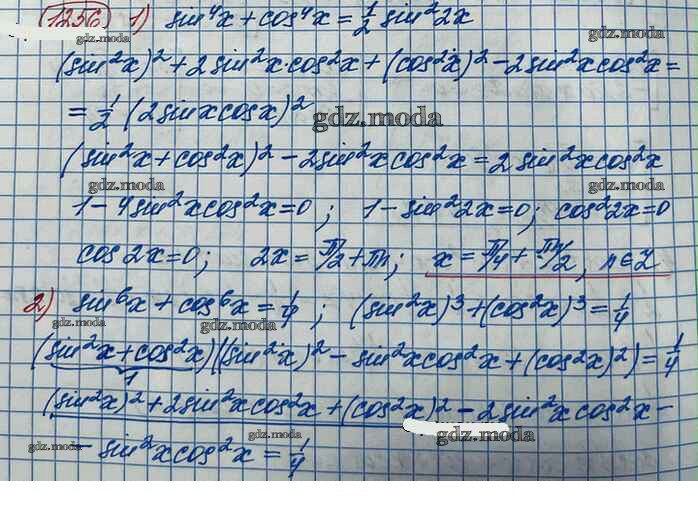 1256 1) sin⁴x + cos⁴x = 1/2 sin²2x
(sin²x)² + 2sin²x·cos²x + (cos²x)² - 2sin²xcos²x =
= 1/2 (2sinxcosx)²
gdz.moda
(sin²x + cos²x)² - 2sin²xcos²x = 2sin²xcos²x
gdz.moda gdz.moda
1 - 4sin²xcos²x = 0 ; 1 - sin²2x = 0; cos²2x = 0
cos2x = 0; 2x = π/2 + πn; x = π/4 + πn/2, n∈Z
2) sin⁶x + cos⁶x = 1/4 ; (sin²x)³ + (cos²x)³ = 1/4
gdz.moda gdz.moda
(sin²x + cos²x)((sin²x)² - sin²xcos²x + (cos²x)²) = 1/4
1
(sin²x)² + 2sin²xcos²x + (cos²x)² - 2sin²xcos²x -
gdz.moda gdz.moda gdz.moda
- sin²xcos²x = 1/4